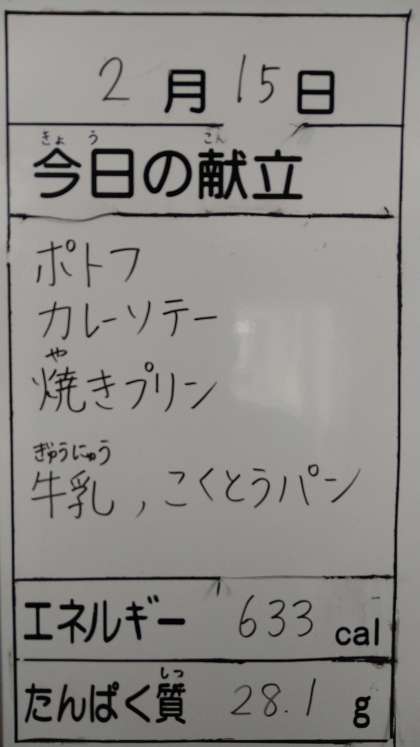 2月15日
きょう こん
今日の献立
ポトフ
カレーソテー
や
焼きプリン
ぎゅうにゅう
牛乳,こくとうパン
エネルギー 633 cal
しつ
たんぱく質 28.1 g